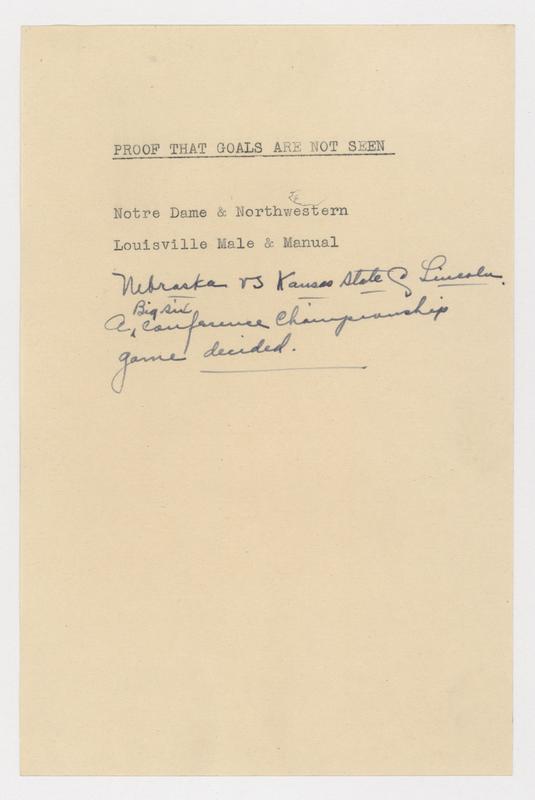 PROOF THAT GOALS ARE NOT SEEN
Notre Dame & Northwestern
Louisville Male & Manual
Nebraska vs Kansas State @ Lincoln.
A Big six Conference Championship
game decided.